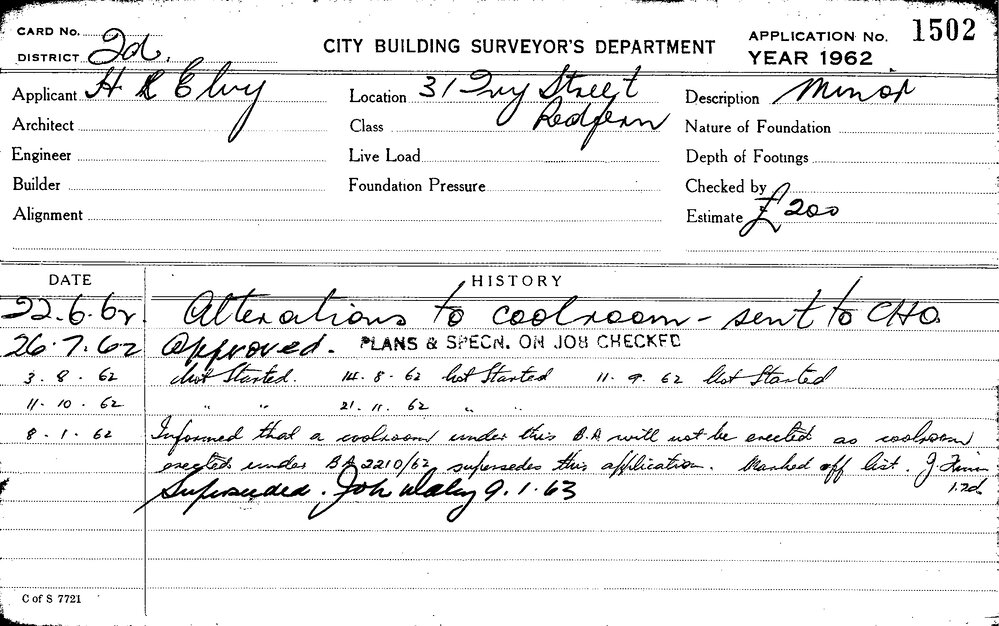 CARD No.
DISTRICT 2d.
CITY BUILDING SURVEYOR'S DEPARTMENT
APPLICATION No. 1502
YEAR 1962
Applicant H R Elvy
Location 31 Ivy Street
Redfern
Description Minor
Architect
Class
Nature of Foundation
Engineer
Live Load
Depth of Footings
Builder
Foundation Pressure
Checked by
Alignment
Estimate £200
DATE HISTORY
22.6.62. Alterations to coolroom - sent to CHO
26.7.62 Approved. PLANS & SPECN. ON JOB CHECKED
3.8.62 Not Started. 14.8.62 Not Started 11.9.62 Not Started
11.10.62 " " 21.11.62 " "
8.1.62 Informed that a coolroom under this B.A will not be erected as coolroom
erected under BA 2210/62 supersedes this application. Marked off list. J.
1.2d
Superseded. 9.1.63
C of S 7721